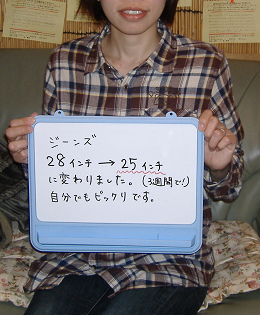 ジーンズ
28インチ→25インチ
に変わりました。(3週間で!)
自分でもビックリです。